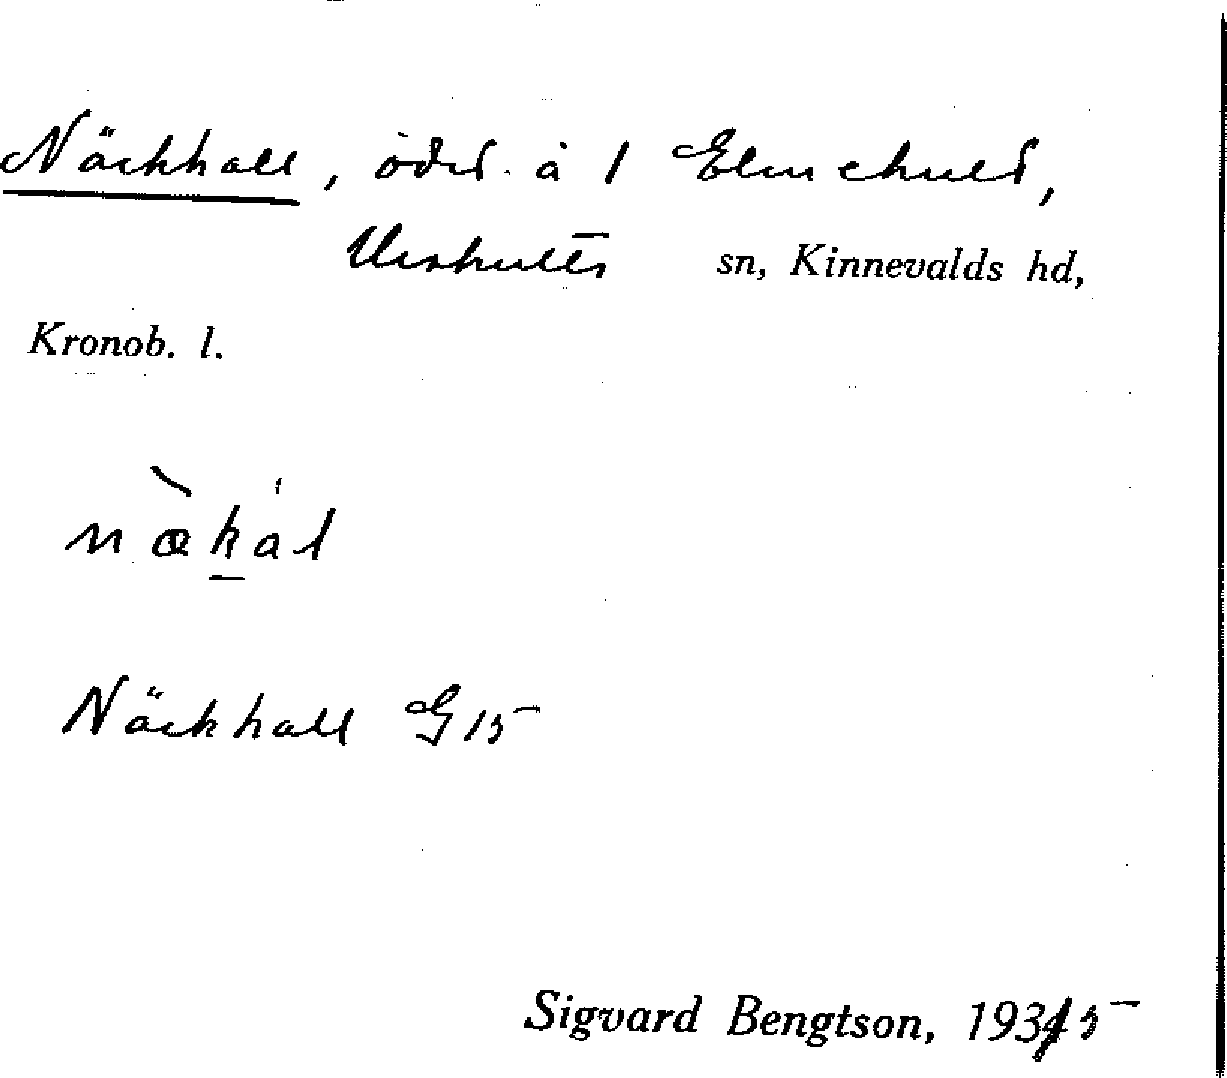 Näckhall, ödel. å 1 Elmehult,
Urshults sn, Kinnevalds hd,
Kronob. l.
nækal
Näckhall G 15
Sigvard Bengtson, 1935